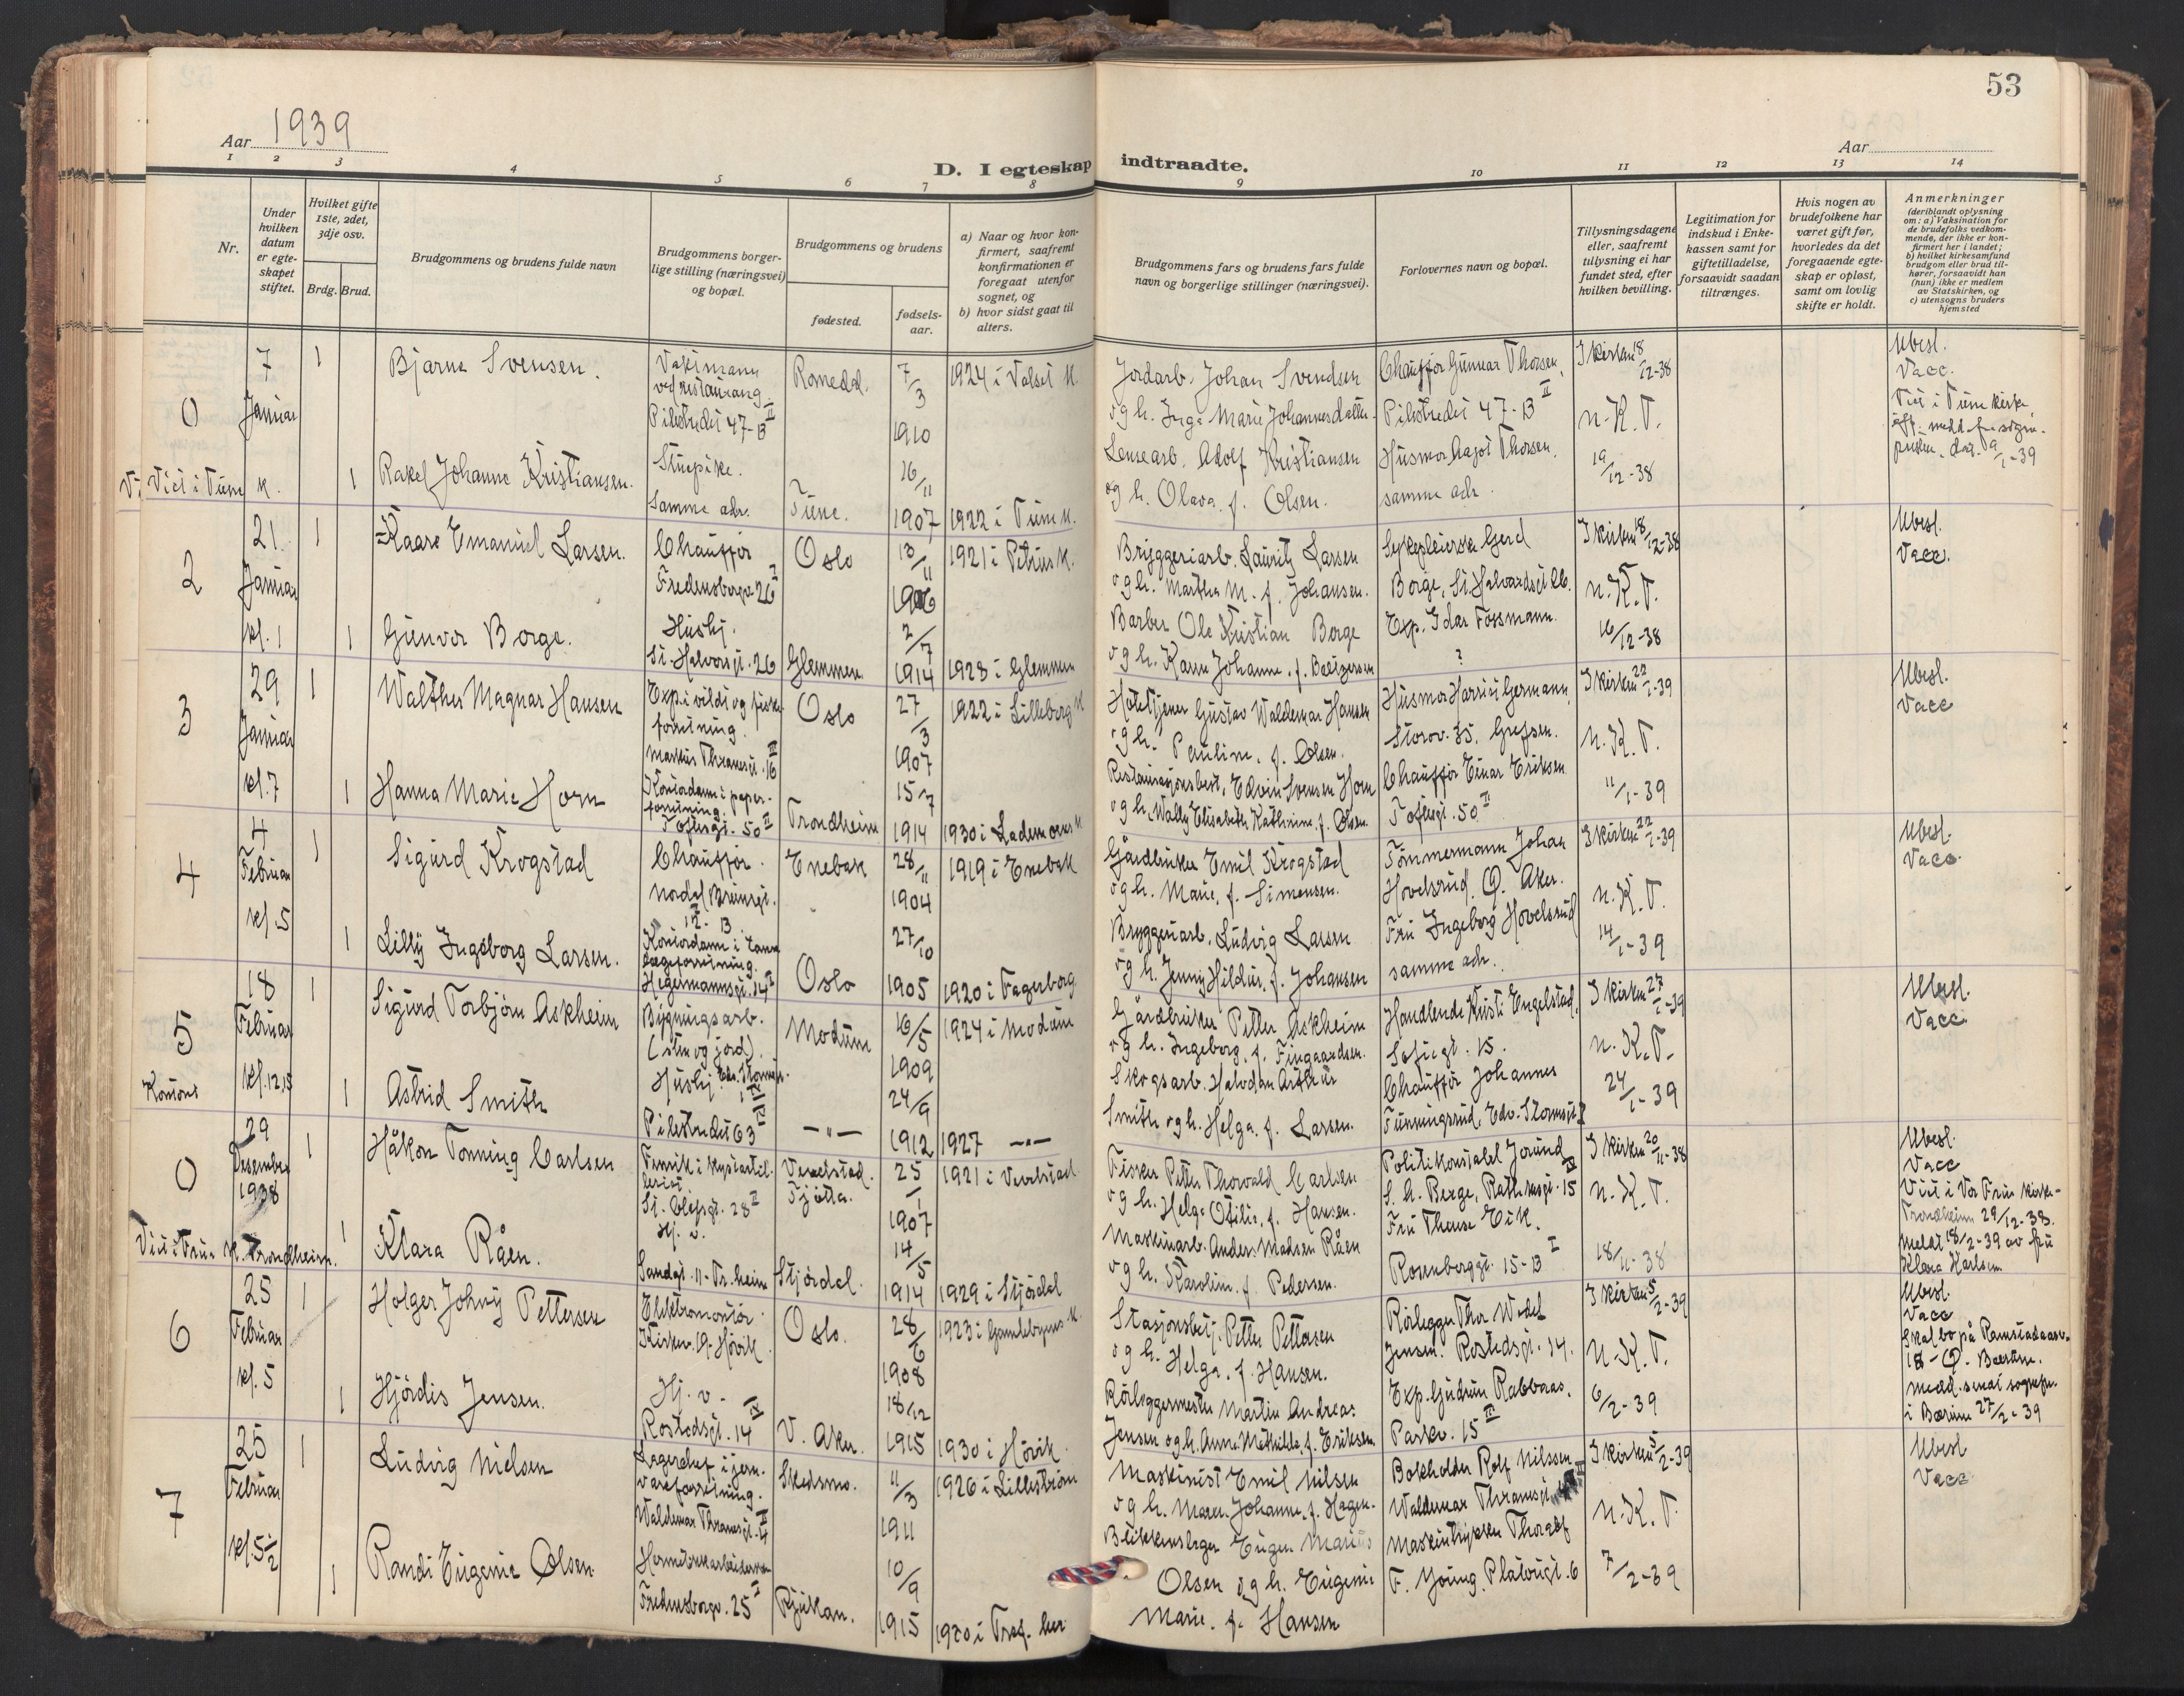 53
Aar 1939
Aar
D. I egteskap indtraadte.
1 2 3 4 5 6 7 8 9 10 11 12 13 14
Nr.
Under hvilken datum er egte-skapet stiftet.
Hvilket gifte 1ste, 2det, 3dje osv.
Brdg. Brud.
Brudgommens og brudens fulde navn
Brudgommens borger-lige stilling (næringsvei) og bopæl.
Brudgommens og brudens
fødested.
fødsels-aar.
a) Naar og hvor kon-firmert, saafremt konfirmationen er foregaat utenfor sognet, og
b) hvor sidst gaat til alters.
Brudgommens fars og brudens fars fulde navn og borgerlige stillinger (næringsvei).
Forlovernes navn og bopæl.
Tillysningsdagene eller, saafremt tillysning ei har fundet sted, efter hvilken bevilling.
Legitimation for indskud i Enke-kassen samt for giftetilladelse, forsaavidt saadan tiltrænges.
Hvis nogen av brudefolkene har været gift før, hvorledes da det foregaaende egte-skap er opløst, samt om lovlig skifte er holdt.
Anmerkninger
(deriblandt oplysning om: a) Vaksination for de brudefolks vedkom-mende, der ikke er kon-firmert her i landet; b) hvilket kirkesamfund brudgom eller brud til-hører, forsaavidt han (hun) ikke er medlem av Statskirken, og c) utensogns bruders hjemsted
0
7 Januar
1
Bjarne Svensen.
Vaktmann ved restaurang. Pilestredet 47-B II
Romedal.
7/3 1910
1924 i Valset K.
Jordarb. Johan Svendsen og h. Inga Marie Johannesdatter.
Chauffør Gunnar Thorsen, Pilestredet 47-B II
I kirken 18/12-38
n.K.T.
Ubesl.
Vacc.
Viet i Tune kirke
Viet i Tune K.
1
Rakel Johanne Kristiansen.
Stuepike. Samme adr.
Tune.
16/11 1907
1922 i Tune K.
Lensearb. Adolf Kristiansen og h. Olava f. Olsen.
Husmor Aagot Thorsen. samme adr.
19/12-38
2
21. Januar kl. 1
1
Kaare Emanuel Larsen.
Chauffør Fredensborgv. 26
Oslo
13/11 1906
1921 i Petrus K.
Bryggeriarb. Lauritz Larsen og h. Martha M. f. Johansen.
Sykepleierske Gerd Borge, St. Halvardsgt.
I kirken 18/12-38
n.K.T.
Ubesl.
Vacc.
1
Gunvor Borge.
Hushj. St. Halvorsgt. 26
Glemmen.
2/7 1914
1928 i Glemmen
Barber Ole Kristian Borge og h. Karen Johanne. f.
Exp. Idar Fossmann. ?
16/12-38
3
29 Januar kl. 7
1
Walther Magnar Hansen
Exp. i vildt og fiske forretning. Markus Thranesgt. 16 III
Oslo
27/3 1907
1922 i Lilleborg K
Hotelltjener Gustav Waldemar Hansen og h. Pauline, f. Olsen.
Storov. 35, Grefsen.
I kirken 22/1-39
n.K.T.
Ubesl.
Vacc
1
Hanna Marie Horn
Kontordame i papir-forretning. Toftesgt. 50 II
Trondheim
15/7 1914
1930 i Lademoens K
Restaurasjonsbest. Edvin Svensen Horn og h. Wally Elisabeth Kathinine, f. Olsen.
Chauffør Einar Eriksen Toftesgt. 50 II
11/1-39
4
4 Februar kl. 5
1
Sigurd Krogstad
Chauffør. Nordal Brunsgt. 12-B
Enebak
28/11 1904
1919 i Enebak
Gårdbruker Emil Krogstad og h. Marie, f. Simensen.
Tømmermann Johan Hovelsrud, Ø. Aker.
I kirken 22/1-39
n.K.T.
Ubesl.
Vacc.
1
Lilly Ingeborg Larsen.
Kontordame i Hegermannsgt. 14 I
Oslo
27/10 1905
1920 i Fagerborg
Bryggeriarb. Ludvig Larsen og h. Jenny Hildur, f. Johansen
Fru Ingeborg Hovelsrud samme adr.
14/1-39
5
18 Februar kl. 12,15
Kontoret
1
Sigurd Torbjørn Askheim
Bygningsarb. (sten og jord).
Modum
16/5 1909
1924 i Modum
Gårdbruker Petter Askheim og h. Ingeborg, f. Fingaardsen.
Handlende Kristi Engelstad, Sofiegt. 15.
I kirken 27/1-39
n.K.T.
Ubesl.
Vacc
1
Astrid Smith
Hushj. Pilestredet 63 IV
—"—
24/9 1912
1927 —"—
Skogsarb. Halvdan Arthur Smith og h. Helga. f. Larsen.
Chauffør Johannes
24/1-39
0
29 Desember 1938
1
Håkon Tonning Carlsen
Fenrik i kystartilleriet St. Olafsgt. 28 II
Vevelstad. Tjøtta.
25/1 1907
1921 i Vevelstad.
Fisker Petter Thorvald Carlsen og h. Helga Otilie, f. Hansen.
Politikonstabel Jorund S. h. Berge, Rathkesgt. 15 IV
I kirken 20/11-38
n.K.T.
Ubesl.
Vacc
Viet i Vor Frue kirke-Trondheim 29/12-38. Meldt 18/2-39 av fru Klara Karlsen
Viet i Frue K. Trondheim.
1
Klara Råen.
Hj. v. Sandgt. 11-Tr.heim
Stjørdal.
14/5 1914
1929 i Stjørdal
Maskinarb. Anders Madsen Råen og h. Karoline. f. Pedersen.
Fru Therese Eik. Rosenborggt. 15-B I
18/11-38
6
25 Februar kl. 5
1
Holger Johny Pettersen
Elektromontør. Kirkev. 19-Høvik
Oslo.
28/6 1908
1923 i Gamlebyens K.
Stasjonsbetj. Petter Pettersen og h. Helga. f. Hansen.
Rørlegger Thor Wedel Jensen. Rostedsgt. 14.
I kirken 5/2-39
n.K.T.
Ubesl.
Vacc
Skal bo på Ramstadaasv. 18-Ø. Bærum. Medd. sendt sogneprt. i Bærum 27/2-39
1
Hjørdis Jensen.
Hj. v. Rostedsgt. 14 IV
V. Aker.
18/12 1915
1930 i Høvik.
Rørleggermester Martin Andreas Jensen og h. Anna Mathilde, f. Eriksen
Exp. Gudrun Rabbaas, Parkv. 15 III
6/2-39
7
25 Februar kl. 5½
1
Ludvig Nielsen
Lagerchef i jern-vareforretning. Waldemar Thranesgt. 4 II
Skedsmo.
11/3 1911
1926 i Lillestrøm
Maskinist Emil Nilsen og h. Maren Johanne, f. Hagen.
Bokholder Rolf Nilssen Waldemar Thranesgt.
I kirken 5/2-39
n.K.T.
Ubesl
Vacc
1
Randi Eugenie Olsen
Hermetikkarbeiderske Fredensborgv. 25 I
Rjukan.
10/9 1915
1920 i Tref. her
Blikkenslager Eugen Marius Olsen og h. Eugenie Marie. f. Hansen
Maskintrykker Thoralf F. Young, Platougt. 6
7/2-39